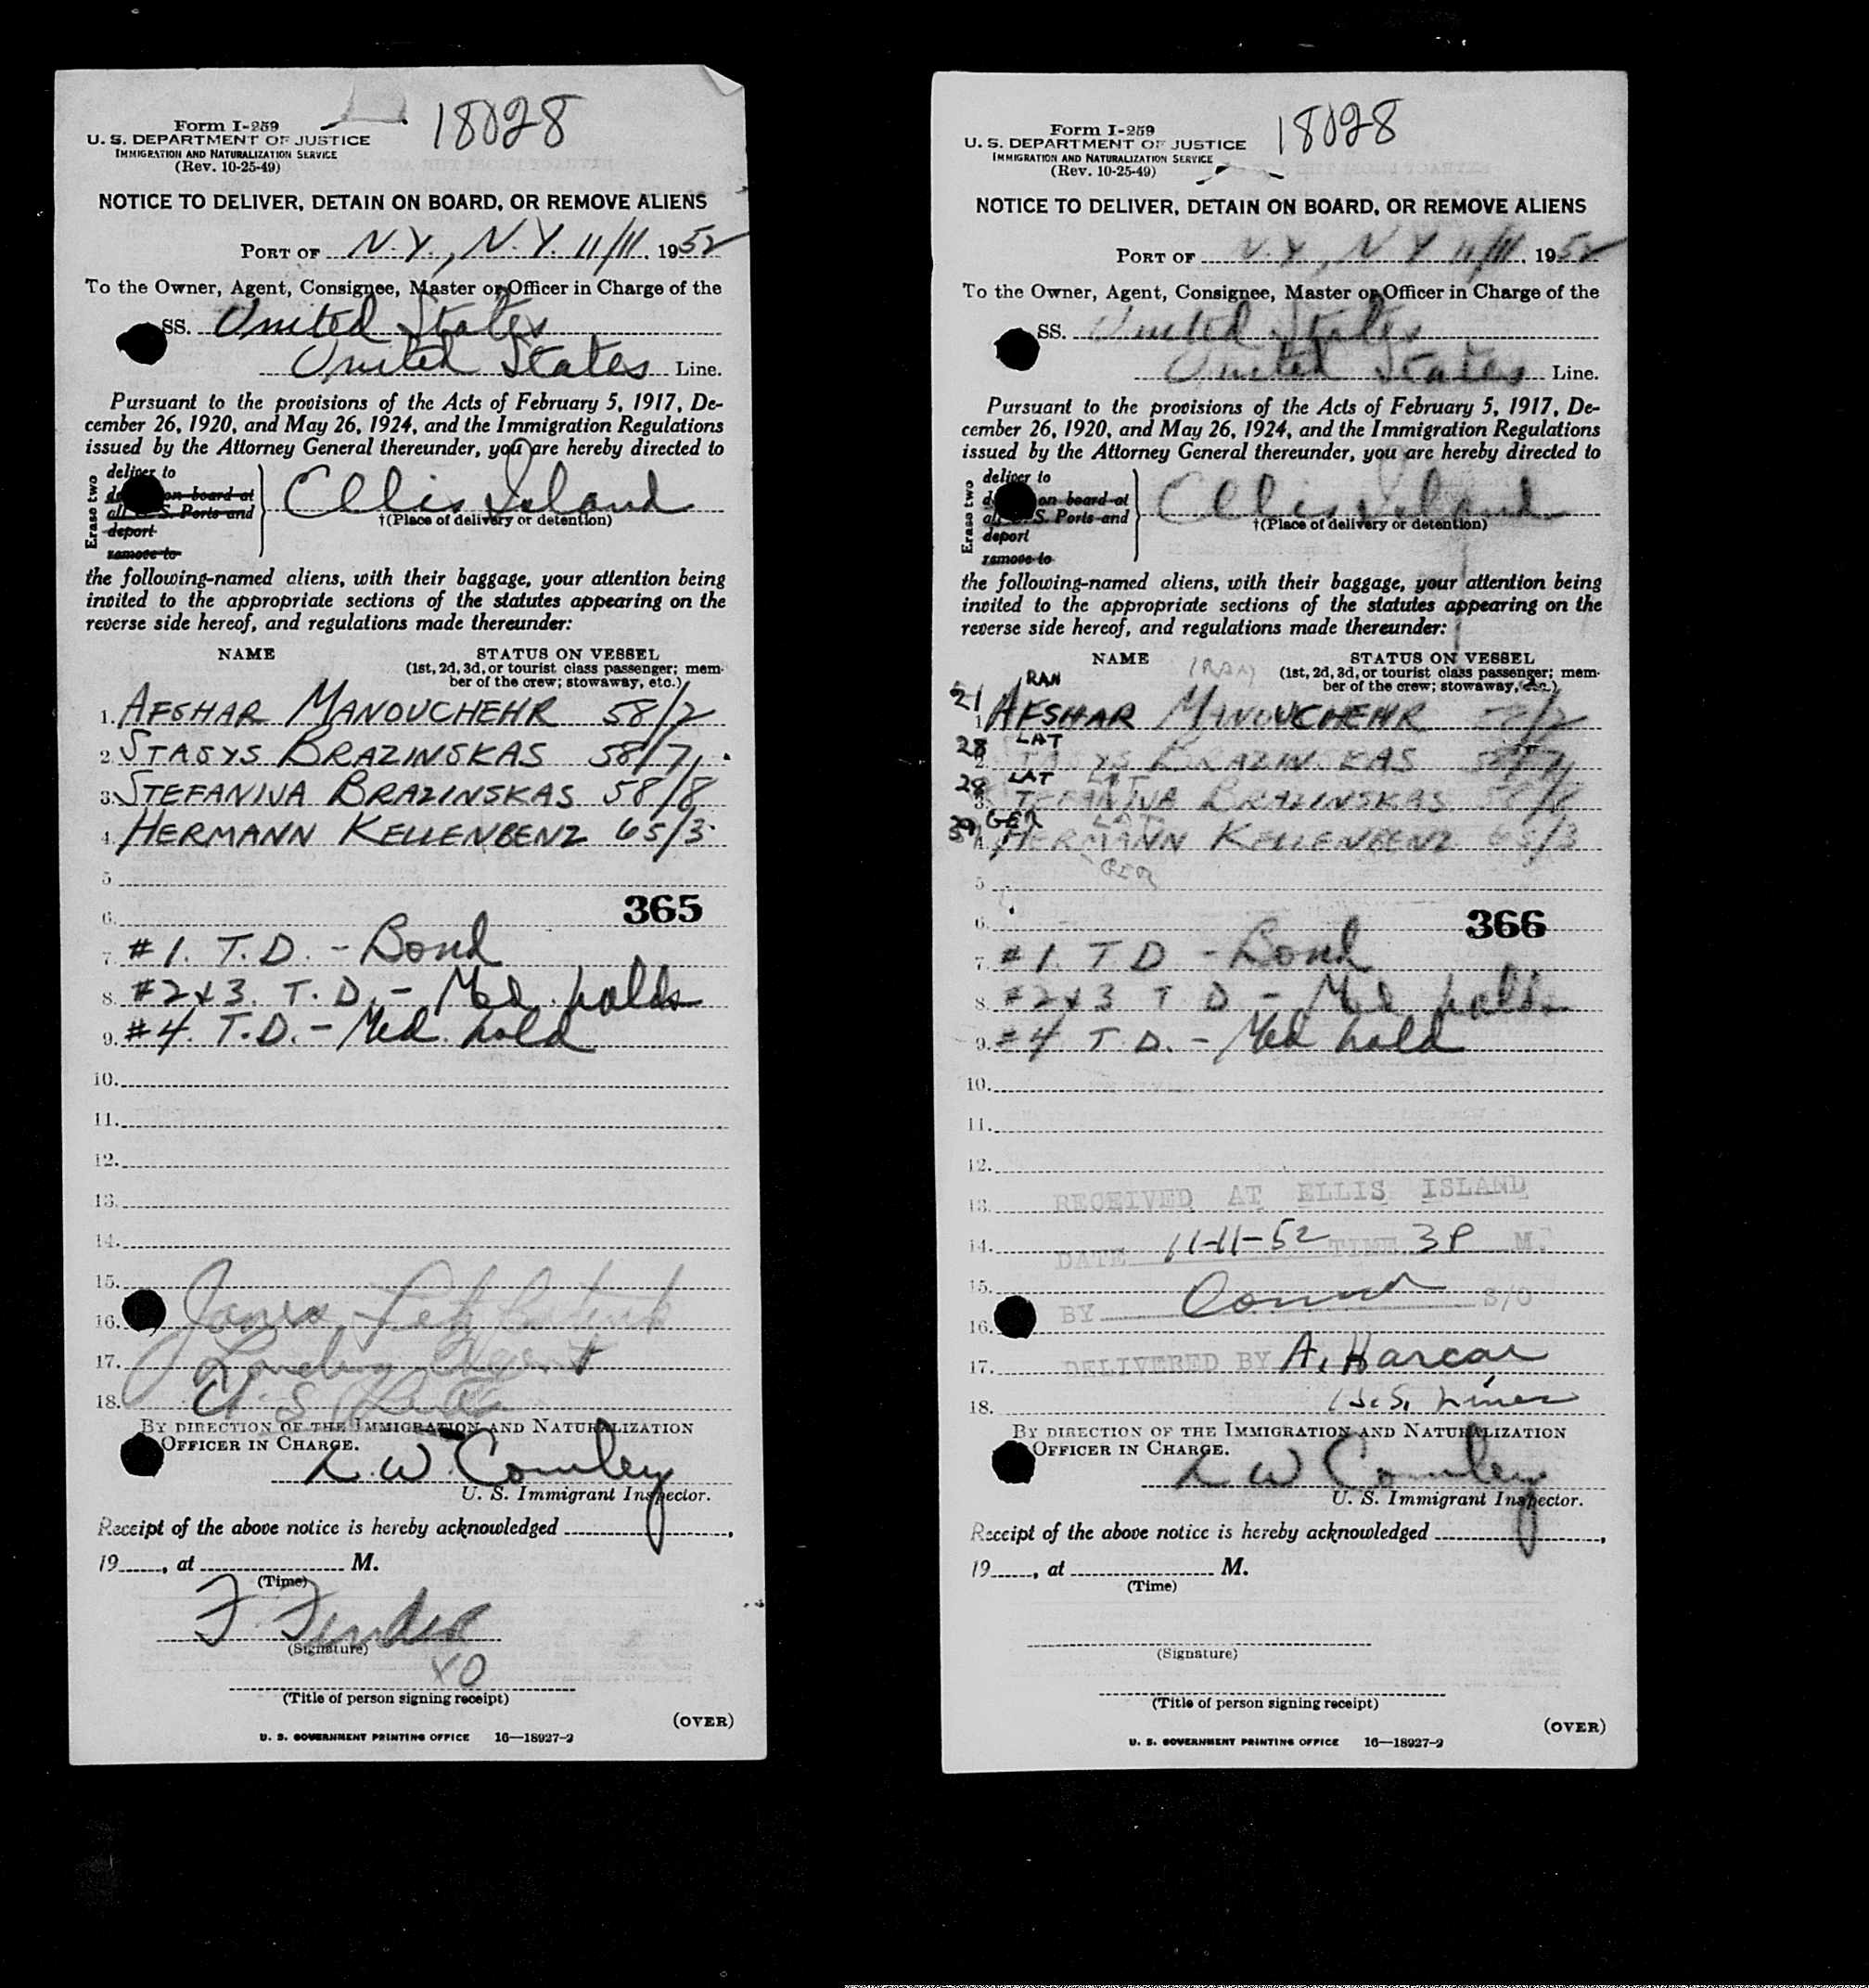 Form I-259
U. S. DEPARTMENT OF JUSTICE
IMMIGRATION AND NATURALIZATION SERVICE
(Rev. 10-25-49)
18028
NOTICE TO DELIVER, DETAIN ON BOARD, OR REMOVE ALIENS
PORT OF N.Y., N.Y. 11/11, 1952
To the Owner, Agent, Consignee, Master or Officer in Charge of the
SS. United States
United States Line.
Pursuant to the provisions of the Acts of February 5, 1917, De-
cember 26, 1920, and May 26, 1924, and the Immigration Regulations
issued by the Attorney General thereunder, you are hereby directed to
Erase two
deliver to
on board at
all S. Ports and
deport
remove to
Ellis Island
†(Place of delivery or detention)
the following-named aliens, with their baggage, your attention being
invited to the appropriate sections of the statutes appearing on the
reverse side hereof, and regulations made thereunder:
NAME STATUS ON VESSEL
(1st, 2d, 3d, or tourist class passenger; mem-
ber of the crew; stowaway, etc.)
1. AFSHAR MANOUCHEHR 58/2
2. STASYS BRAZINSKAS 58/7
3. STEFANIJA BRAZINSKAS 58/8
4. HERMANN KELLENBENZ 65/3
5
6. 365
7. #1. T.D. - Bond
8. #2&3. T.D. - Med. holds
9. #4. T.D. - Med. hold
10.
11.
12.
13.
14.
15.
16. James
17. Landing Agent
18. U.S. Lines
BY DIRECTION OF THE IMMIGRATION AND NATURALIZATION
OFFICER IN CHARGE.
L. W. Comley
U. S. Immigrant Inspector.
Receipt of the above notice is hereby acknowledged
19, at M.
(Time)
F. Fender
(Signature)
XO
(Title of person signing receipt)
(OVER)
U. S. GOVERNMENT PRINTING OFFICE 16—18927-2
Form I-259
U. S. DEPARTMENT OF JUSTICE
IMMIGRATION AND NATURALIZATION SERVICE
(Rev. 10-25-49)
18028
NOTICE TO DELIVER, DETAIN ON BOARD, OR REMOVE ALIENS
PORT OF N.Y., N.Y. 11/11, 1952
To the Owner, Agent, Consignee, Master or Officer in Charge of the
SS. United States
United States Line.
Pursuant to the provisions of the Acts of February 5, 1917, De-
cember 26, 1920, and May 26, 1924, and the Immigration Regulations
issued by the Attorney General thereunder, you are hereby directed to
Erase two
deliver to
on board at
all S. Ports and
deport
remove to
Ellis Island
†(Place of delivery or detention)
the following-named aliens, with their baggage, your attention being
invited to the appropriate sections of the statutes appearing on the
reverse side hereof, and regulations made thereunder:
NAME STATUS ON VESSEL
(1st, 2d, 3d, or tourist class passenger; mem-
ber of the crew; stowaway, etc.)
IRAN
RAN
21 1. AFSHAR MANOUCHEHR 58/2
LAT
28 2. STASYS BRAZINSKAS 58/7
LAT LAT
28 3. STEFANIJA BRAZINSKAS 58/8
GER LAT
39 4. HERMANN KELLENBENZ 65/3
GER
5
6. 366
7. #1. T D - Bond
8. #2&3 T D - Med holds
9. #4 T.D. - Med hold
10.
11.
12.
13. RECEIVED AT ELLIS ISLAND
14. DATE 11-11-52 TIME 3P M.
15.
BY S/O
16.
17. DELIVERED BY A. Harcar
18. U.S. Lines
BY DIRECTION OF THE IMMIGRATION AND NATURALIZATION
OFFICER IN CHARGE.
L W Comley
U. S. Immigrant Inspector.
Receipt of the above notice is hereby acknowledged
19, at M.
(Time)
(Signature)
(Title of person signing receipt)
(OVER)
U. S. GOVERNMENT PRINTING OFFICE 16—18927-2